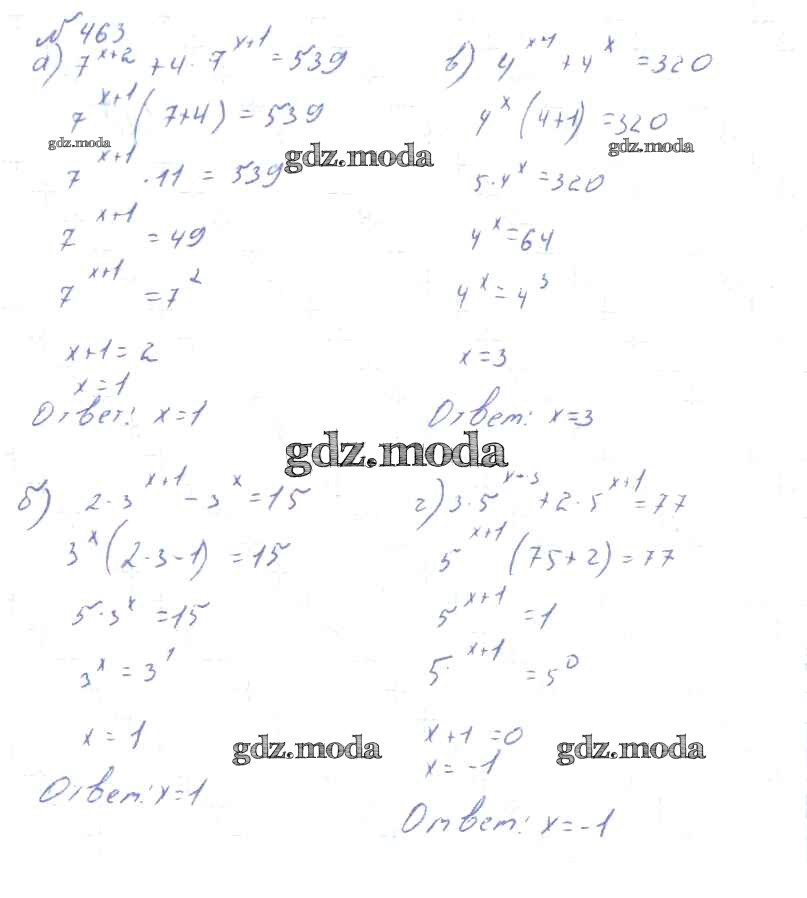 №463
а) 7^(x+2) + 4 · 7^(x+1) = 539
7^(x+1) (7+4) = 539
gdz.moda
7^(x+1) · 11 = 539
7^(x+1) = 49
7^(x+1) = 7^2
x+1 = 2
x = 1
Ответ: x=1
в) 4^(x+1) + 4^x = 320
4^x (4+1) = 320
gdz.moda
gdz.moda
5·4^x = 320
4^x = 64
4^x = 4^3
x = 3
Ответ: x=3
gdz.moda
б) 2·3^(x+1) - 3^x = 15
3^x (2·3-1) = 15
5·3^x = 15
3^x = 3^1
x = 1
gdz.moda
Ответ: x=1
г) 3·5^(x+3) + 2·5^(x+1) = 77
5^(x+1) (75+2) = 77
5^(x+1) = 1
5^(x+1) = 5^0
x+1 = 0
gdz.moda
x = -1
Ответ: x=-1